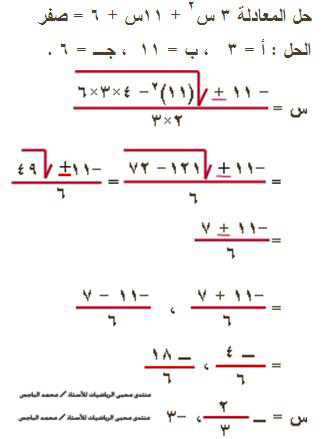 حل المعادلة ٣ س٢ + ١١س + ٦ = صفر
الحل : أ = ٣ ، ب = ١١ ، جـ = ٦ .
س = (− ١١ ± √((١١)٢ − ٤×٣×٦)) / ٢×٣
= (−١١ ± √(١٢١ − ٧٢)) / ٦ = (−١١ ± √٤٩) / ٦
= (−١١ ± ٧) / ٦
= (−١١ + ٧) / ٦ ، (−١١ − ٧) / ٦
= − ٤ / ٦ ، − ١٨ / ٦
س = − ٢ / ٣ ، −٣
منتدى محبى الرياضيات للأستاذ / محمد الباجس
منتدى محبى الرياضيات للأستاذ / محمد الباجس